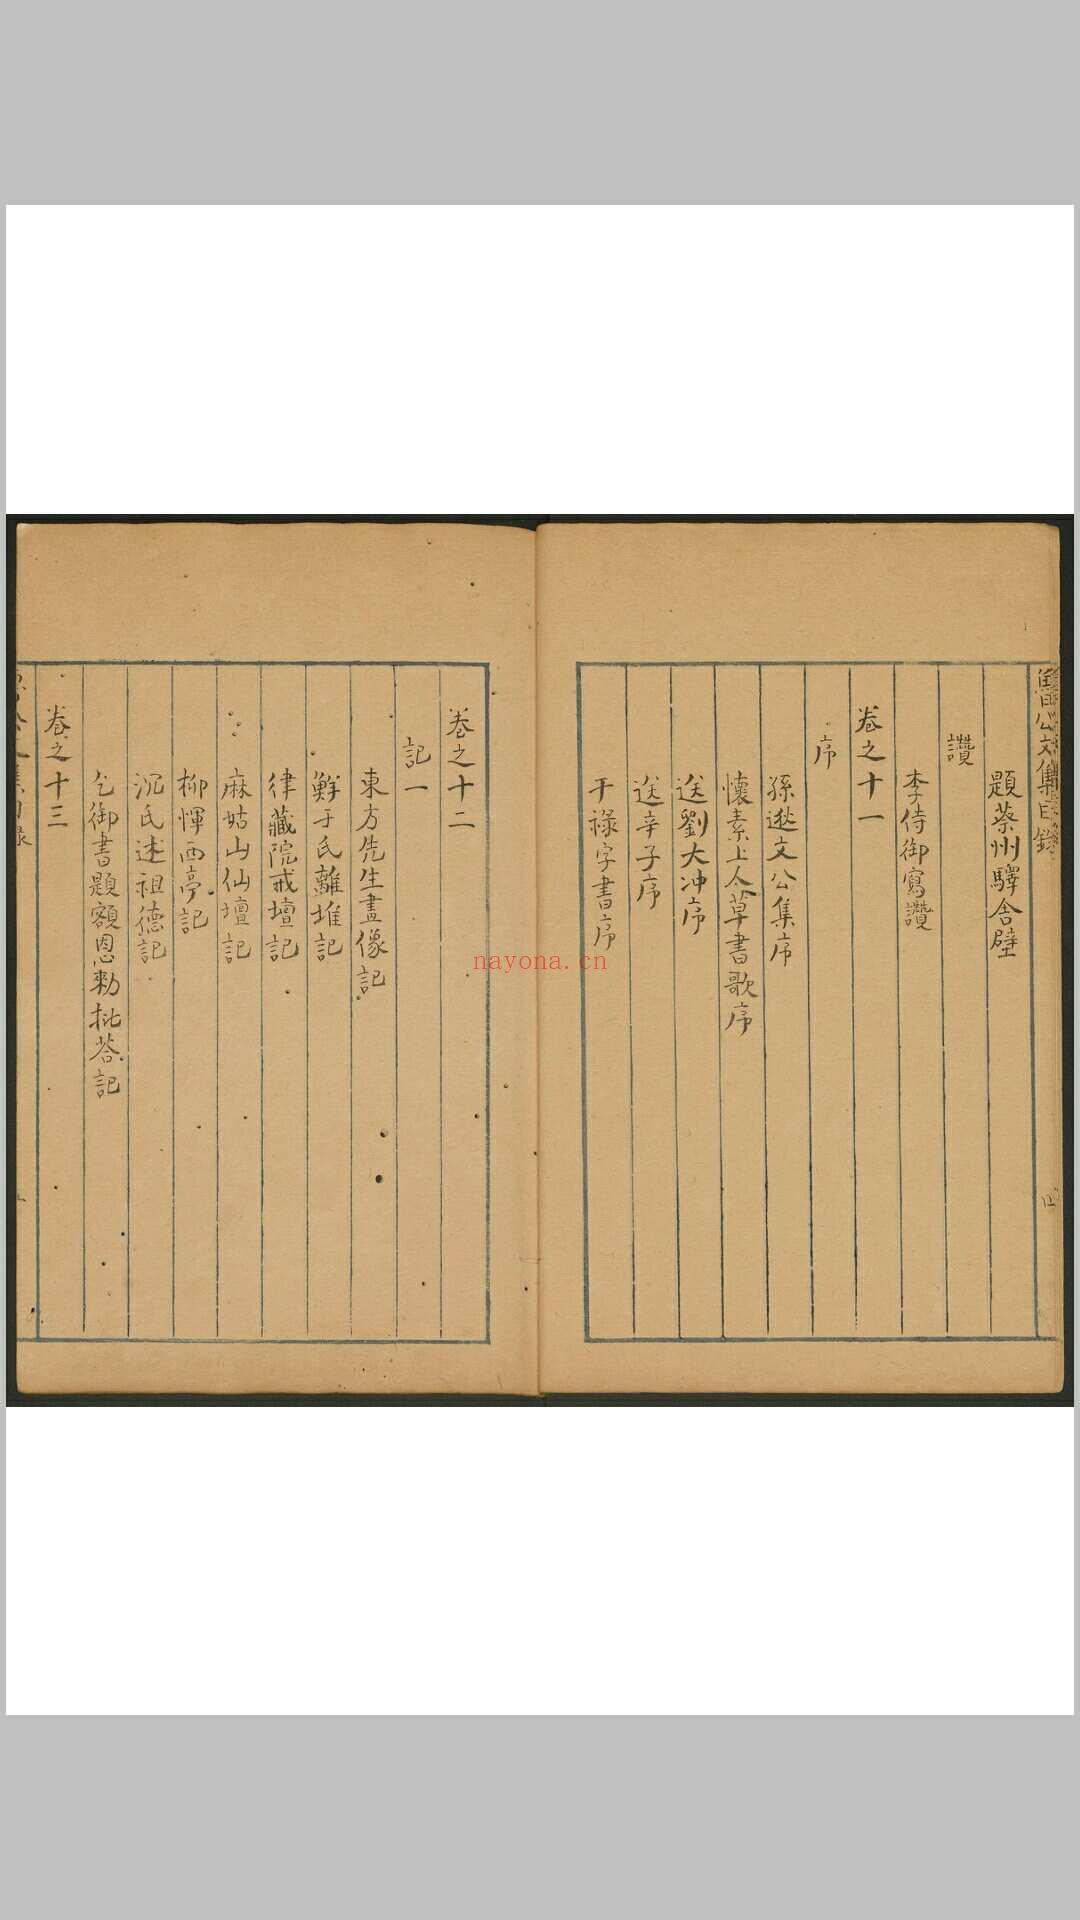 魯公文集目錄
題蔡州驛舍壁
讚
李侍御寫讚
卷之十一
序
孫逖文公集序
懷素上人草書歌序
送劉大冲序
送辛子序
干祿字書序
卷之十二
記一
東方先生畫像記
鮮于氏離堆記
律藏院戒壇記
麻姑山仙壇記
柳惲西亭記
沉氏述祖德記
乞御書題額恩勑批荅記
卷之十三
nayona.cn